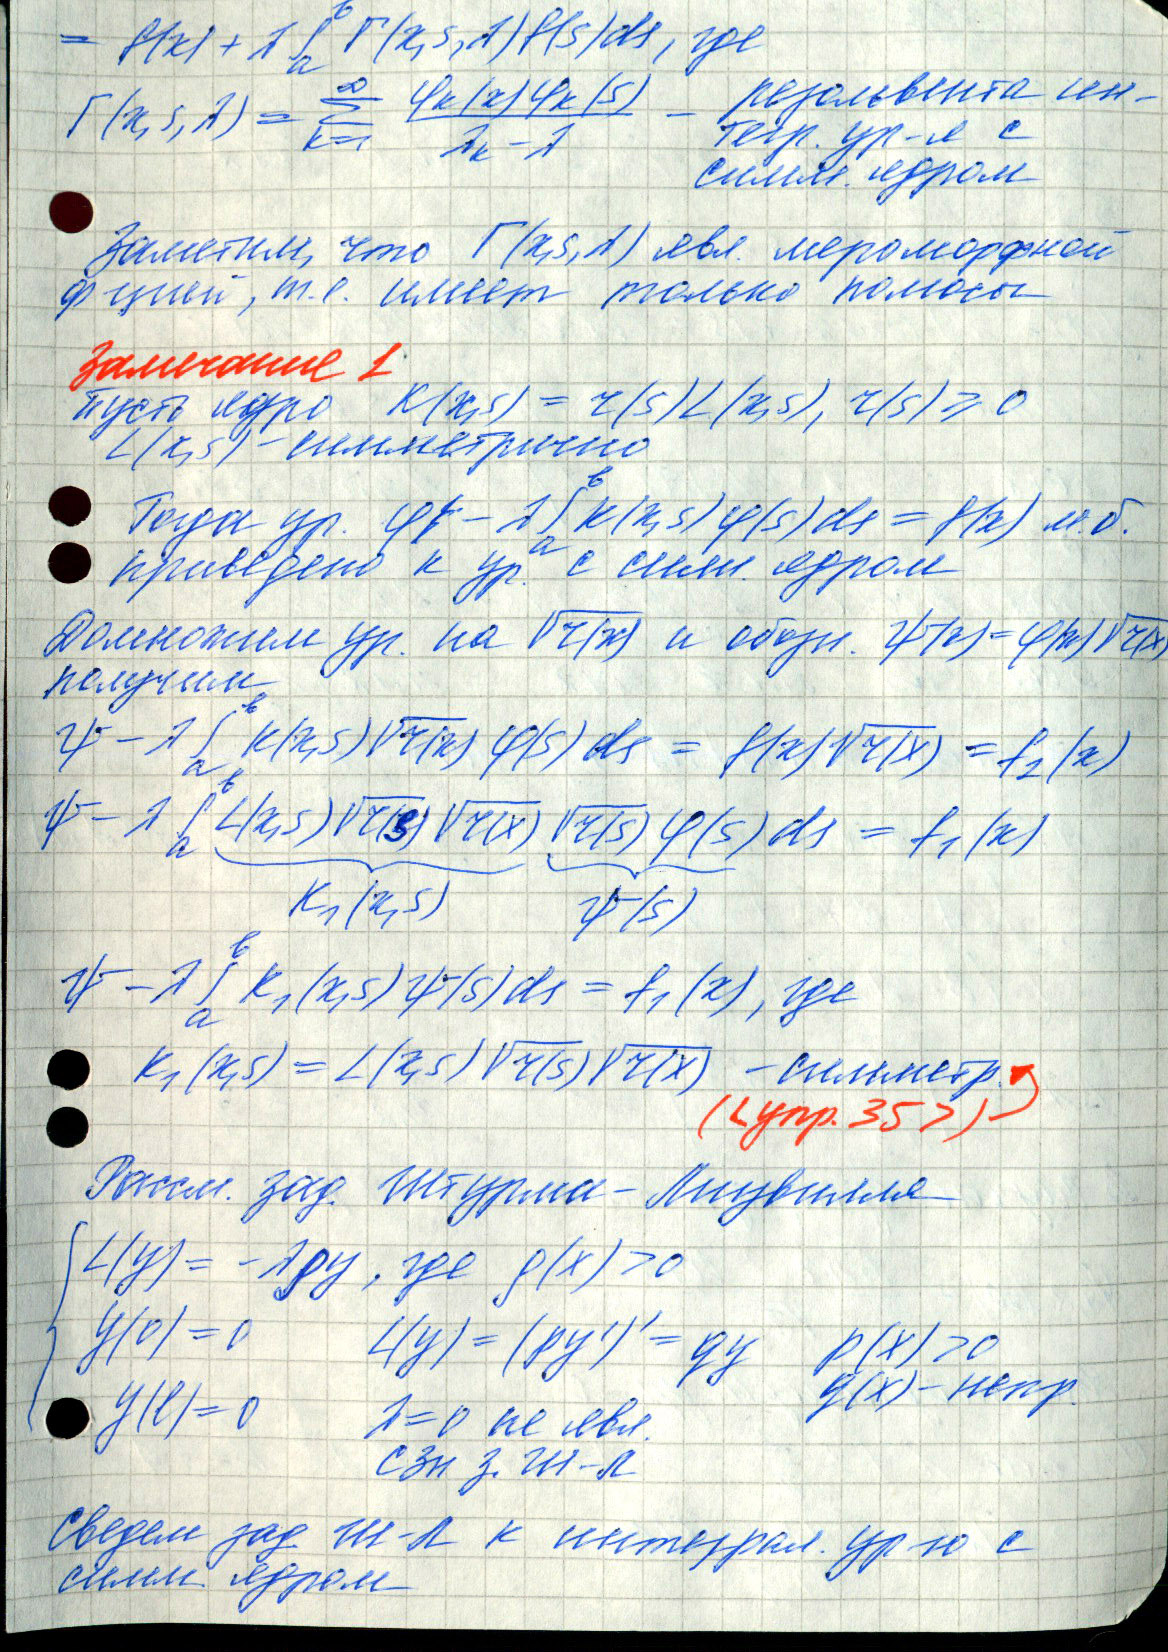 = f(x) + λ∫ₐᵇ Γ(x,s,λ) f(s) ds, где
Γ(x,s,λ) = ∑ₖ₌₁^∞ φₖ(x)φₖ(s) / (λₖ − λ) – резольвента ин-
тегр. ур-я с
симм. ядром
Заметим, что Γ(x,s,λ) явл. мероморфной
ф-цией, т.е. имеет только полюсы
Замечание 1
Пусть ядро K(x,s) = r(s)L(x,s), r(s) ≥ 0
L(x,s) – симметрично
Тогда ур. φ – λ∫ₐᵇ K(x,s) φ(s) ds = f(x) м.б.
приведено к ур. с симм. ядром
Домножим ур. на √r(x) и обозн. ψ(x) = φ(x)√r(x)
получим
ψ – λ∫ₐᵇ K(x,s)√r(x) φ(s) ds = f(x)√r(x) = f₁(x)
ψ – λ∫ₐᵇ L(x,s)√r(s)√r(x) √r(s) φ(s) ds = f₁(x)
K₁(x,s) ψ(s)
ψ – λ∫ₐᵇ K₁(x,s) ψ(s) ds = f₁(x), где
K₁(x,s) = L(x,s)√r(s)√r(x) – симметр.
(<упр. 35>)
Рассм. зад. Штурма – Лиувилля
L(y) = –λρy, где ρ(x) > 0
y(0) = 0 L(y) = (py')' = qy p(x) > 0
q(x) – непр.
y(l) = 0 λ = 0 не явл.
СЗН з. Ш-Л
Сведем зад. Ш-Л к интеграл. ур-ю с
симм. ядром